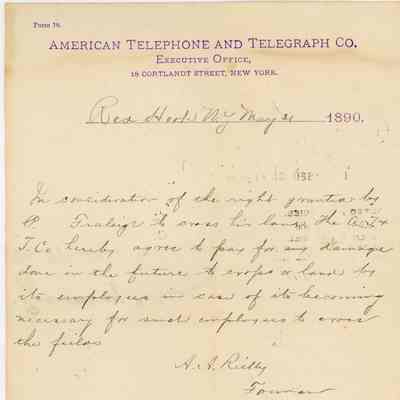 Form 76.
AMERICAN TELEPHONE AND TELEGRAPH CO.
EXECUTIVE OFFICE,
18 CORTLANDT STREET, NEW YORK.
Red Hook NY May 21 1890.
In consideration of the right granted by
P. Fraleigh to cross his land, the A. T. &
T. Co. hereby agree to pay for any damage
done in the future to crops or land by
its employees in case of its becoming
necessary for such employees to cross
the fields
A. A. Rielly
Foreman